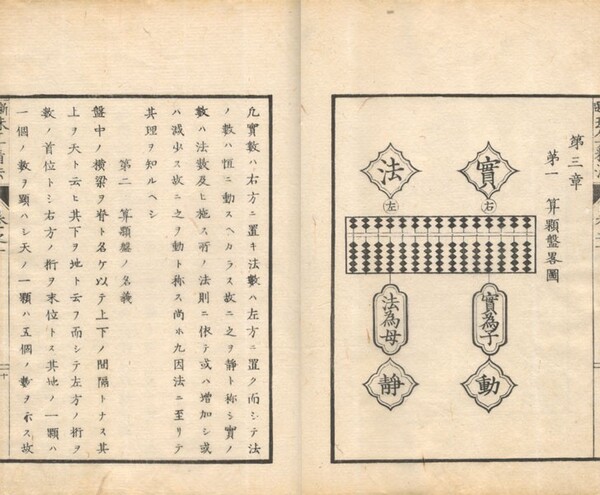 第三章
第一 算顆盤畧圖
實
右
實為子
動
法
左
法為母
静
凡實數ハ右方ニ置キ法數ハ左方ニ置ク而シテ法
ノ數ハ恒ニ動スヘカラス故ニ之ヲ静ト称シ實ノ
數ハ法數及ヒ施ス所ノ法則ニ依テ或ハ增加シ或
ハ減少ス故ニ之ヲ動ト称ス尚ホ九因法ニ至リテ
其理ヲ知ルヘシ
第二 算顆盤ノ名義
盤中ノ横梁ヲ脊ト名ケ以テ上下ノ間隔トナス其
上ヲ天ト云ヒ其下ヲ地ト云フ而シテ左方ノ桁ヲ
數ノ首位トシ右方ノ桁ヲ末位トス其地ノ一顆ハ
一個ノ數ヲ顕ハシ天ノ一顆ハ五個ノ數ヲ示ス故